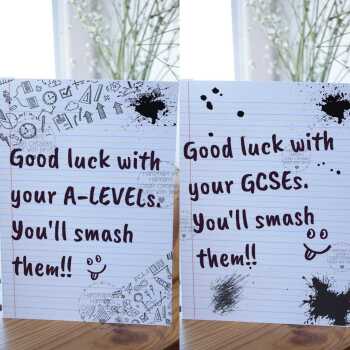 Good luck with
your A-LEVELs.
You'll smash
them!!
Good luck with
your GCSEs.
You'll smash
them!!